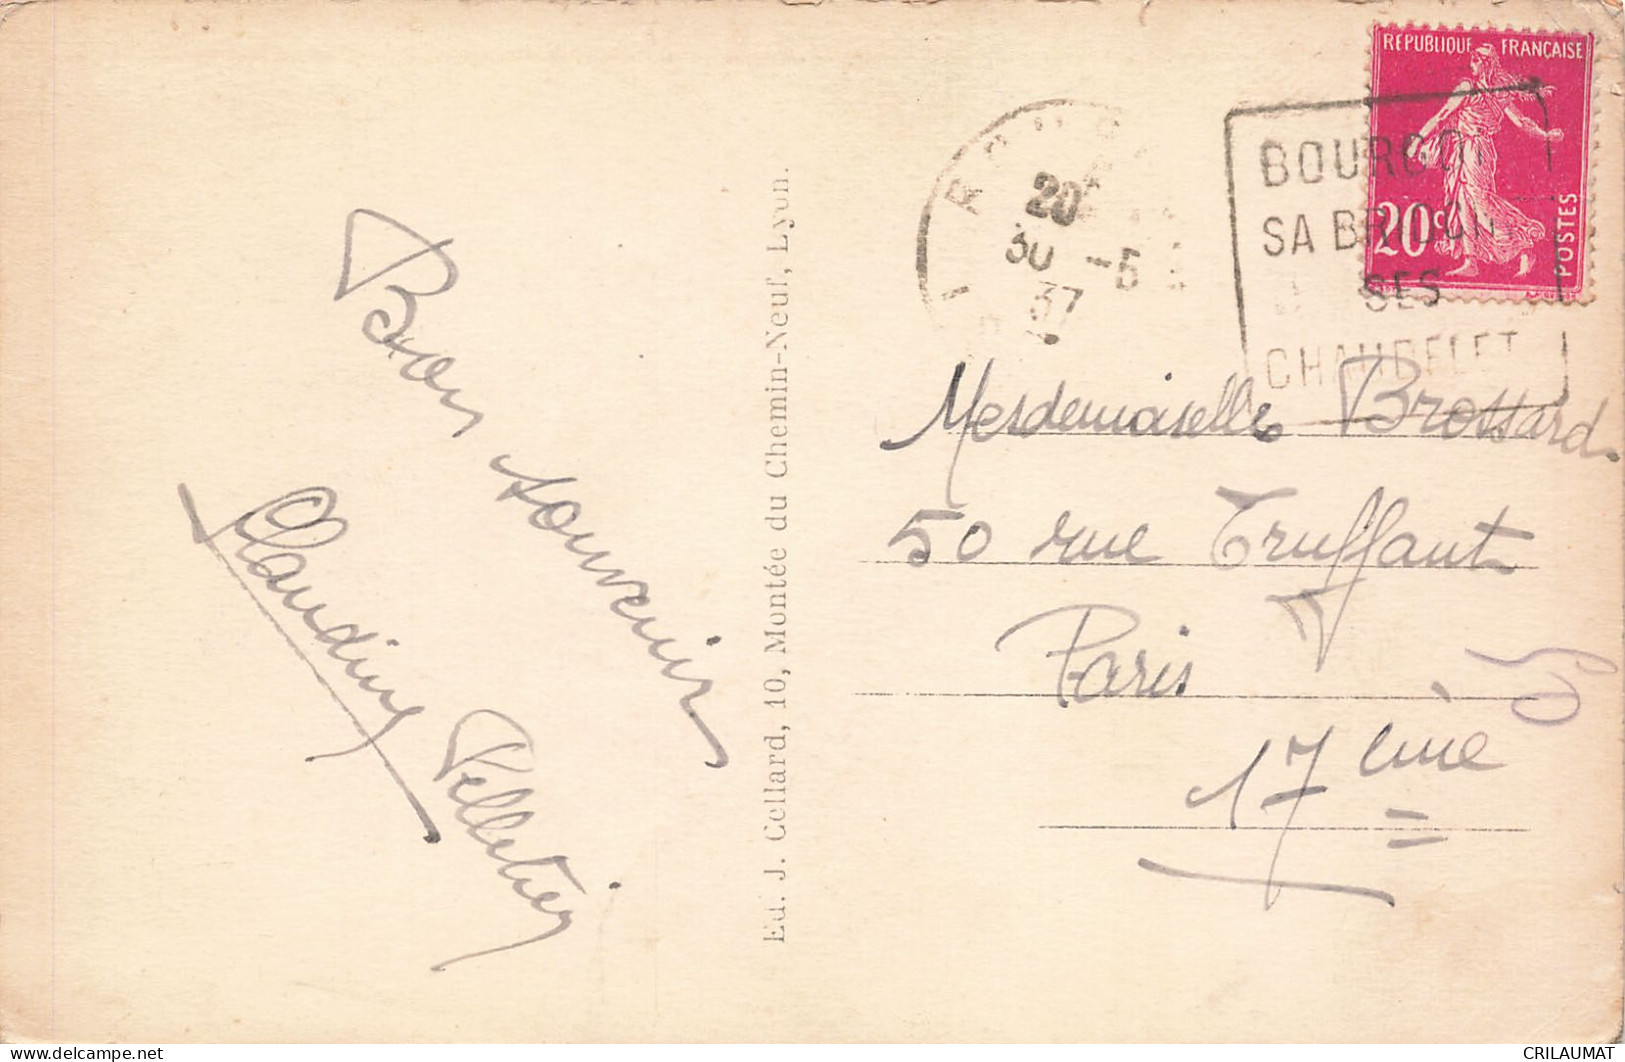 Bon souvenir
Claudius Pelletier
Ed. J. Cellard, 10, Montée du Chemin-Neuf, Lyon.
20
30 -5
37
BOURGOI
SA BRIOCH
SES
REPUBLIQUE FRANÇAISE
20c
POSTES
Mesdemoiselle Brossard.
50 rue Truffaut
Paris
17 eme
delcampe.net
CRILAUMAT